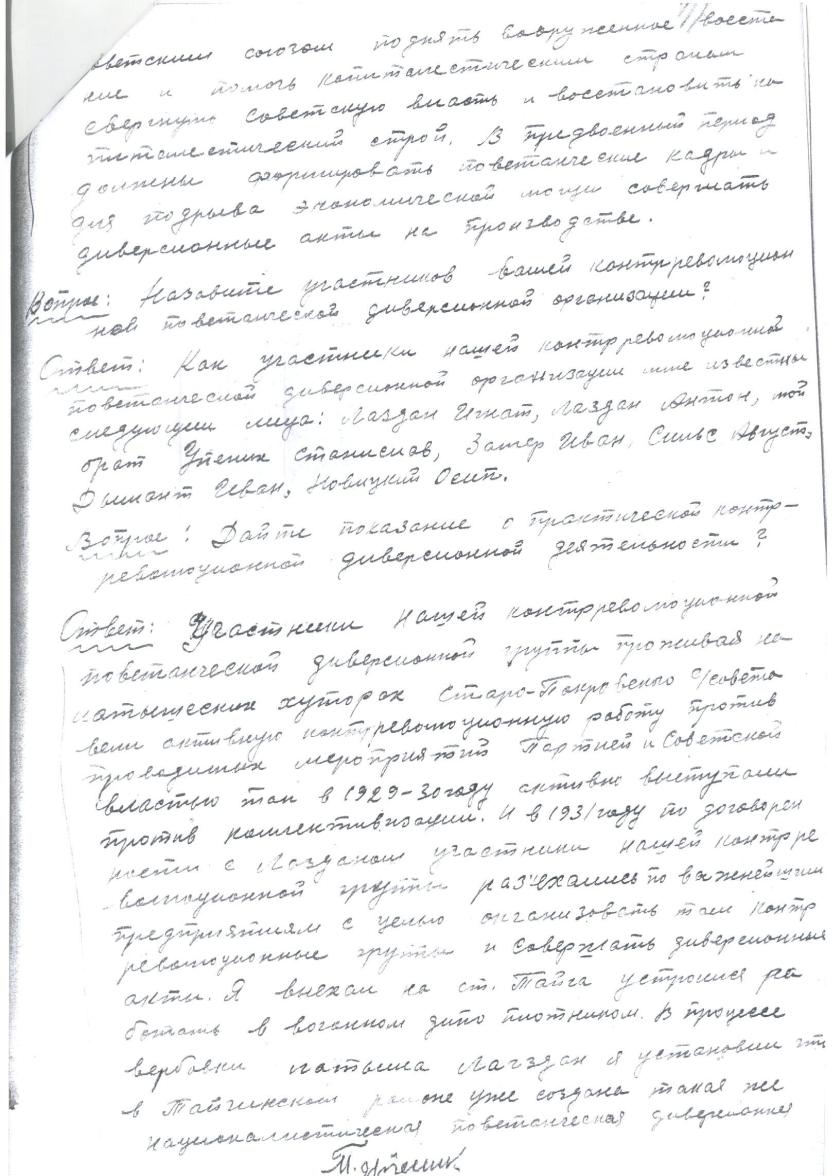 оветским союзом поднять вооруженное восста
ние и помочь капиталестическим странам
свергнуть советскую власть и восстановить ка
питалестический строй. В предвоенный период
должны формировать повстанческие кадры и
для подрыва экономической мощи совершать
диверсионные акты на производстве.
Вопрос: Назовите участников вашей контрреволюцион
ной повстанческой диверсионной организации?
Ответ: Как участники нашей контрреволюционной
повстанческой диверсионной организации мне известны
следующии лица: Лаздан Игнат, Лаздан Антон, мой
брат Упеник Станислав, Затер Иван, Сильс Август,
Дымант Иван, Новицкий Осип.
Вопрос: Дайте показание о практической контр-
революционной диверсионной деятельности?
Ответ: Участники нашей контрреволюционной
повстанческой диверсионной группы проживая на
латышских хуторах Старо-Покровского с/совета
вели активную контрреволюционную работу против
проводимых мероприятий Партией и Советской
властью так в 1929-30 году активно выступали
против коллективизации. И в 1931 году по договорен
ности с Лазданом участники нашей контрре
волюционной группы разъехались по важнейшим
предприятиям с целью организовать там контр
революционные группы и совершать диверсионные
акты. Я выехал на ст. Тайга устроился ра
ботать в вагонном депо плотником. В процессе
вербовки латыша Лагздан я установил что
в Тайгинском районе уже создана такая же
националистическая повстанческая диверсионная